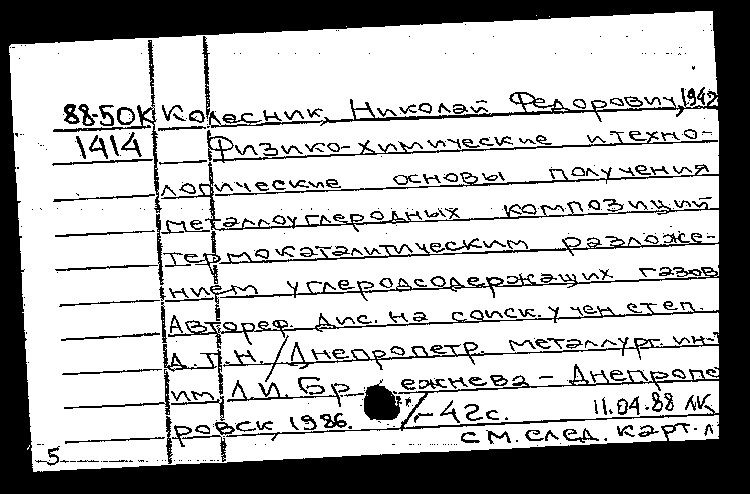 88-50K Колесник, Николай Федорович, 1942
1414 Физико-химические и техно-
логические основы получения
металлоуглеродных композиций
термокаталитическим разложе-
нием углеродсодержащих газов
Автореф. дис. на соиск. учен. степ.
д.т.н. / Днепропетр. металлург. ин-т
им. Л.И. Брежнева - Днепропе
ровск, 1986. - 42с. 11.04.88 ЛК
5 см. след. карт.